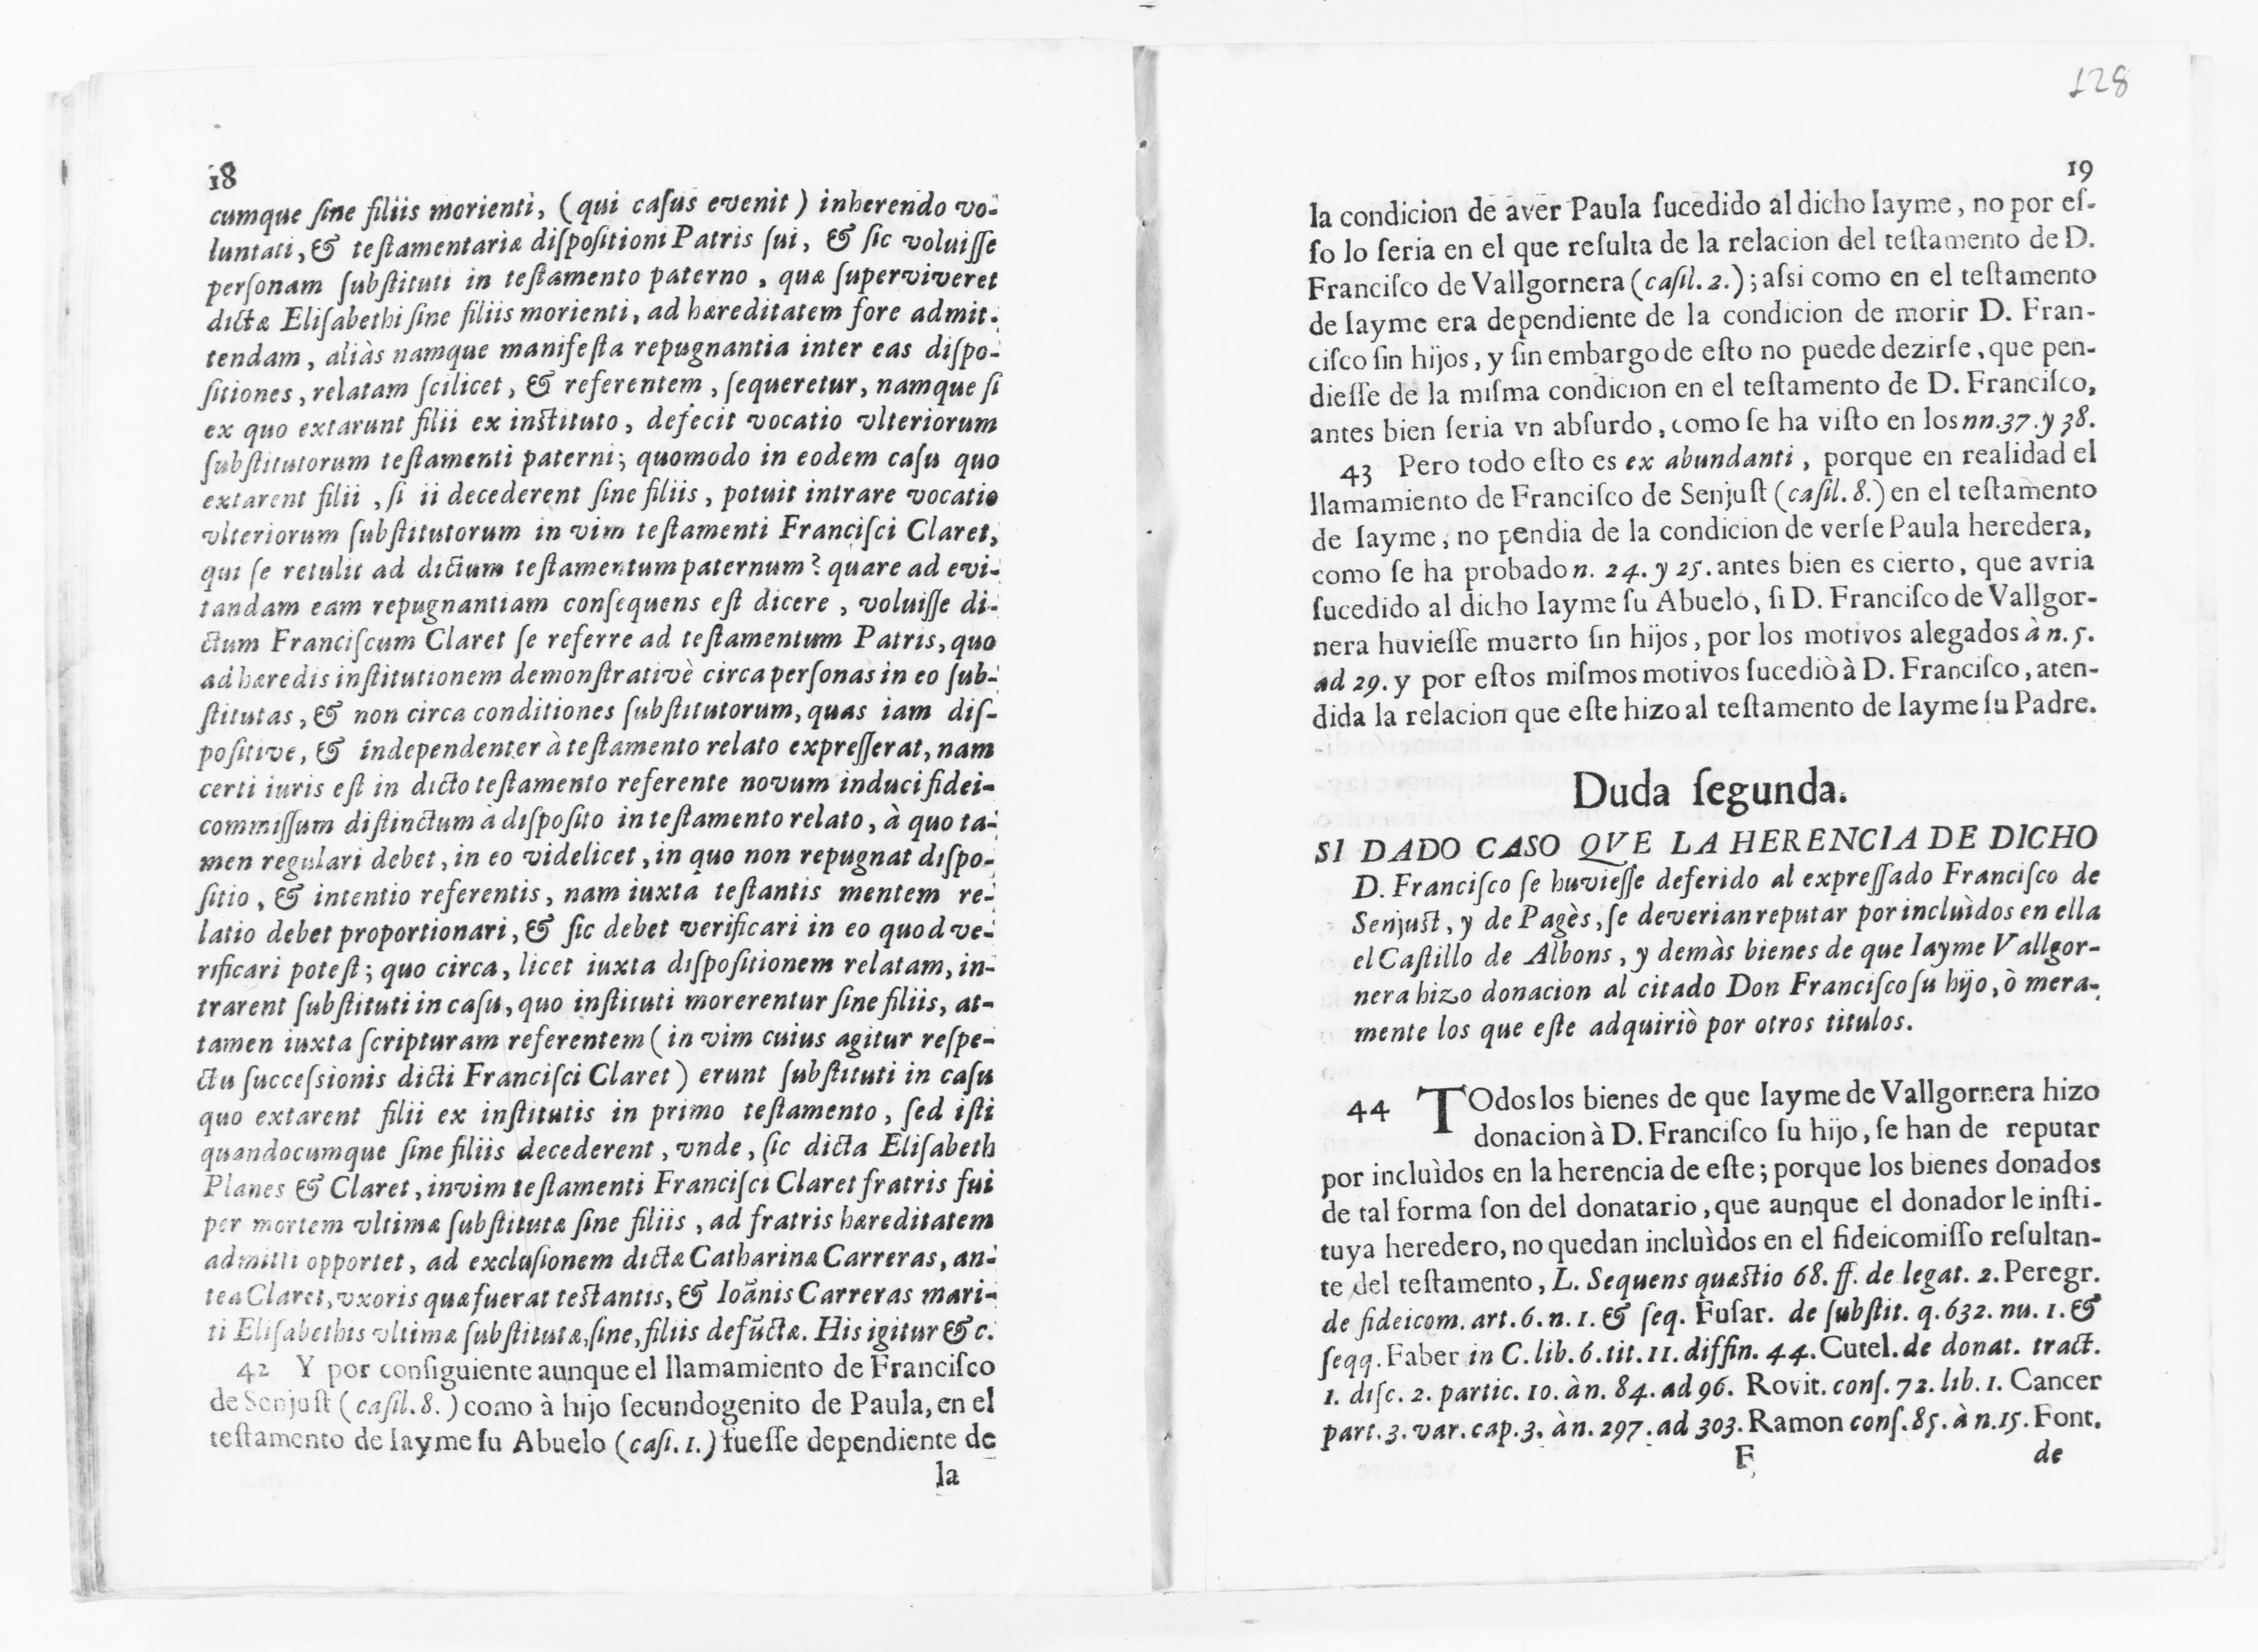 18
cumque ſine filiis morienti, (qui caſus evenit) inherendo vo-
luntati, & teſtamentariæ diſpoſitioni Patris ſui, & ſic voluiſſe
perſonam ſubſtituti in teſtamento paterno, quæ ſuperviveret
dictæ Eliſabethi ſine filiis morienti, ad hæreditatem fore admit-
tendam, aliàs namque manifeſta repugnantia inter eas diſpo-
ſitiones, relatam ſcilicet, & referentem, ſequeretur, namque ſi
ex quo extarunt filii ex inſtituto, defecit vocatio vlteriorum
ſubſtitutorum teſtamenti paterni; quomodo in eodem caſu quo
extarent filii, ſi ii decederent ſine filiis, potuit intrare vocatio
vlteriorum ſubſtitutorum in vim teſtamenti Franciſci Claret,
qui ſe retulit ad dictum teſtamentum paternum? quare ad evi-
tandam eam repugnantiam conſequens eſt dicere, voluiſſe di-
ctum Franciſcum Claret ſe referre ad teſtamentum Patris, quo
ad hæredis inſtitutionem demonſtrativè circa perſonas in eo ſub-
ſtitutas, & non circa conditiones ſubſtitutorum, quas iam diſ-
poſitive, & independenter à teſtamento relato expreſſerat, nam
certi iuris eſt in dicto teſtamento referente novum induci fidei-
commiſſum diſtinctum à diſpoſito in teſtamento relato, à quo ta-
men regulari debet, in eo videlicet, in quo non repugnat diſpo-
ſitio, & intentio referentis, nam iuxta teſtantis mentem re-
latio debet proportionari, & ſic debet verificari in eo quod ve-
rificari poteſt; quo circa, licet iuxta diſpoſitionem relatam, in-
trarent ſubſtituti in caſu, quo inſtituti morerentur ſine filiis, at-
tamen iuxta ſcripturam referentem (in vim cuius agitur reſpe-
ctu ſucceſsionis dicti Franciſci Claret) erunt ſubſtituti in caſu
quo extarent filii ex inſtitutis in primo teſtamento, ſed iſti
quandocumque ſine filiis decederent, vnde, ſic dicta Eliſabeth
Planes & Claret, in vim teſtamenti Franciſci Claret fratris ſui
per mortem vltimæ ſubſtitutæ ſine filiis, ad fratris hæreditatem
admitti opportet, ad excluſionem dictæ Catharinæ Carreras, an-
tea Claret, vxoris quæ fuerat teſtantis, & Ioãnis Carreras mari-
ti Eliſabethis vltimæ ſubſtitutæ, ſine, filiis defũctæ. His igitur &c.
42 Y por conſiguiente aunque el llamamiento de Franciſco
de Senjuſt (caſil. 8.) como à hijo ſecundogenito de Paula, en el
teſtamento de Iayme ſu Abuelo (caſi. 1.) fueſſe dependiente de
la
128
19
la condicion de aver Paula ſucedido al dicho Iayme, no por eſ-
ſo lo ſeria en el que reſulta de la relacion del teſtamento de D.
Franciſco de Vallgornera (caſil. 2.); aſsi como en el teſtamento
de Iayme era dependiente de la condicion de morir D. Fran-
ciſco ſin hijos, y ſin embargo de eſto no puede dezirſe, que pen-
dieſſe de la miſma condicion en el teſtamento de D. Franciſco,
antes bien ſeria vn abſurdo, como ſe ha viſto en los nn. 37. y 38.
43 Pero todo eſto es ex abundanti, porque en realidad el
llamamiento de Franciſco de Senjuſt (caſil. 8.) en el teſtamento
de Iayme, no pendia de la condicion de verſe Paula heredera,
como ſe ha probado n. 24. y 25. antes bien es cierto, que avria
ſucedido al dicho Iayme ſu Abuelo, ſi D. Franciſco de Vallgor-
nera huvieſſe muerto ſin hijos, por los motivos alegados à n. 5.
ad 29. y por eſtos miſmos motivos ſucediò à D. Franciſco, aten-
dida la relacion que eſte hizo al teſtamento de Iayme ſu Padre.
Duda ſegunda.
SI DADO CASO QVE LA HERENCIA DE DICHO
D. Franciſco ſe huvieſſe deferido al expreſſado Franciſco de
Senjuſt, y de Pagès, ſe deverian reputar por incluìdos en ella
el Caſtillo de Albons, y demàs bienes de que Iayme Vallgor-
nera hizo donacion al citado Don Franciſco ſu hijo, ò mera-
mente los que eſte adquiriò por otros titulos.
44 TOdos los bienes de que Iayme de Vallgornera hizo
donacion à D. Franciſco ſu hijo, ſe han de reputar
por incluìdos en la herencia de eſte; porque los bienes donados
de tal forma ſon del donatario, que aunque el donador le inſti-
tuya heredero, no quedan incluìdos en el fideicomiſſo reſultan-
te del teſtamento, L. Sequens quæſtio 68. ff. de legat. 2. Peregr.
de fideicom. art. 6. n. 1. & ſeq. Fuſar. de ſubſtit. q. 632. nu. 1. &
ſeqq. Faber in C. lib. 6. tit. 11. diffin. 44. Cutel. de donat. tract.
1. diſc. 2. partic. 10. à n. 84. ad 96. Rovit. conſ. 72. lib. 1. Cancer
part. 3. var. cap. 3. à n. 297. ad 303. Ramon conſ. 85. à n. 15. Font.
F
de